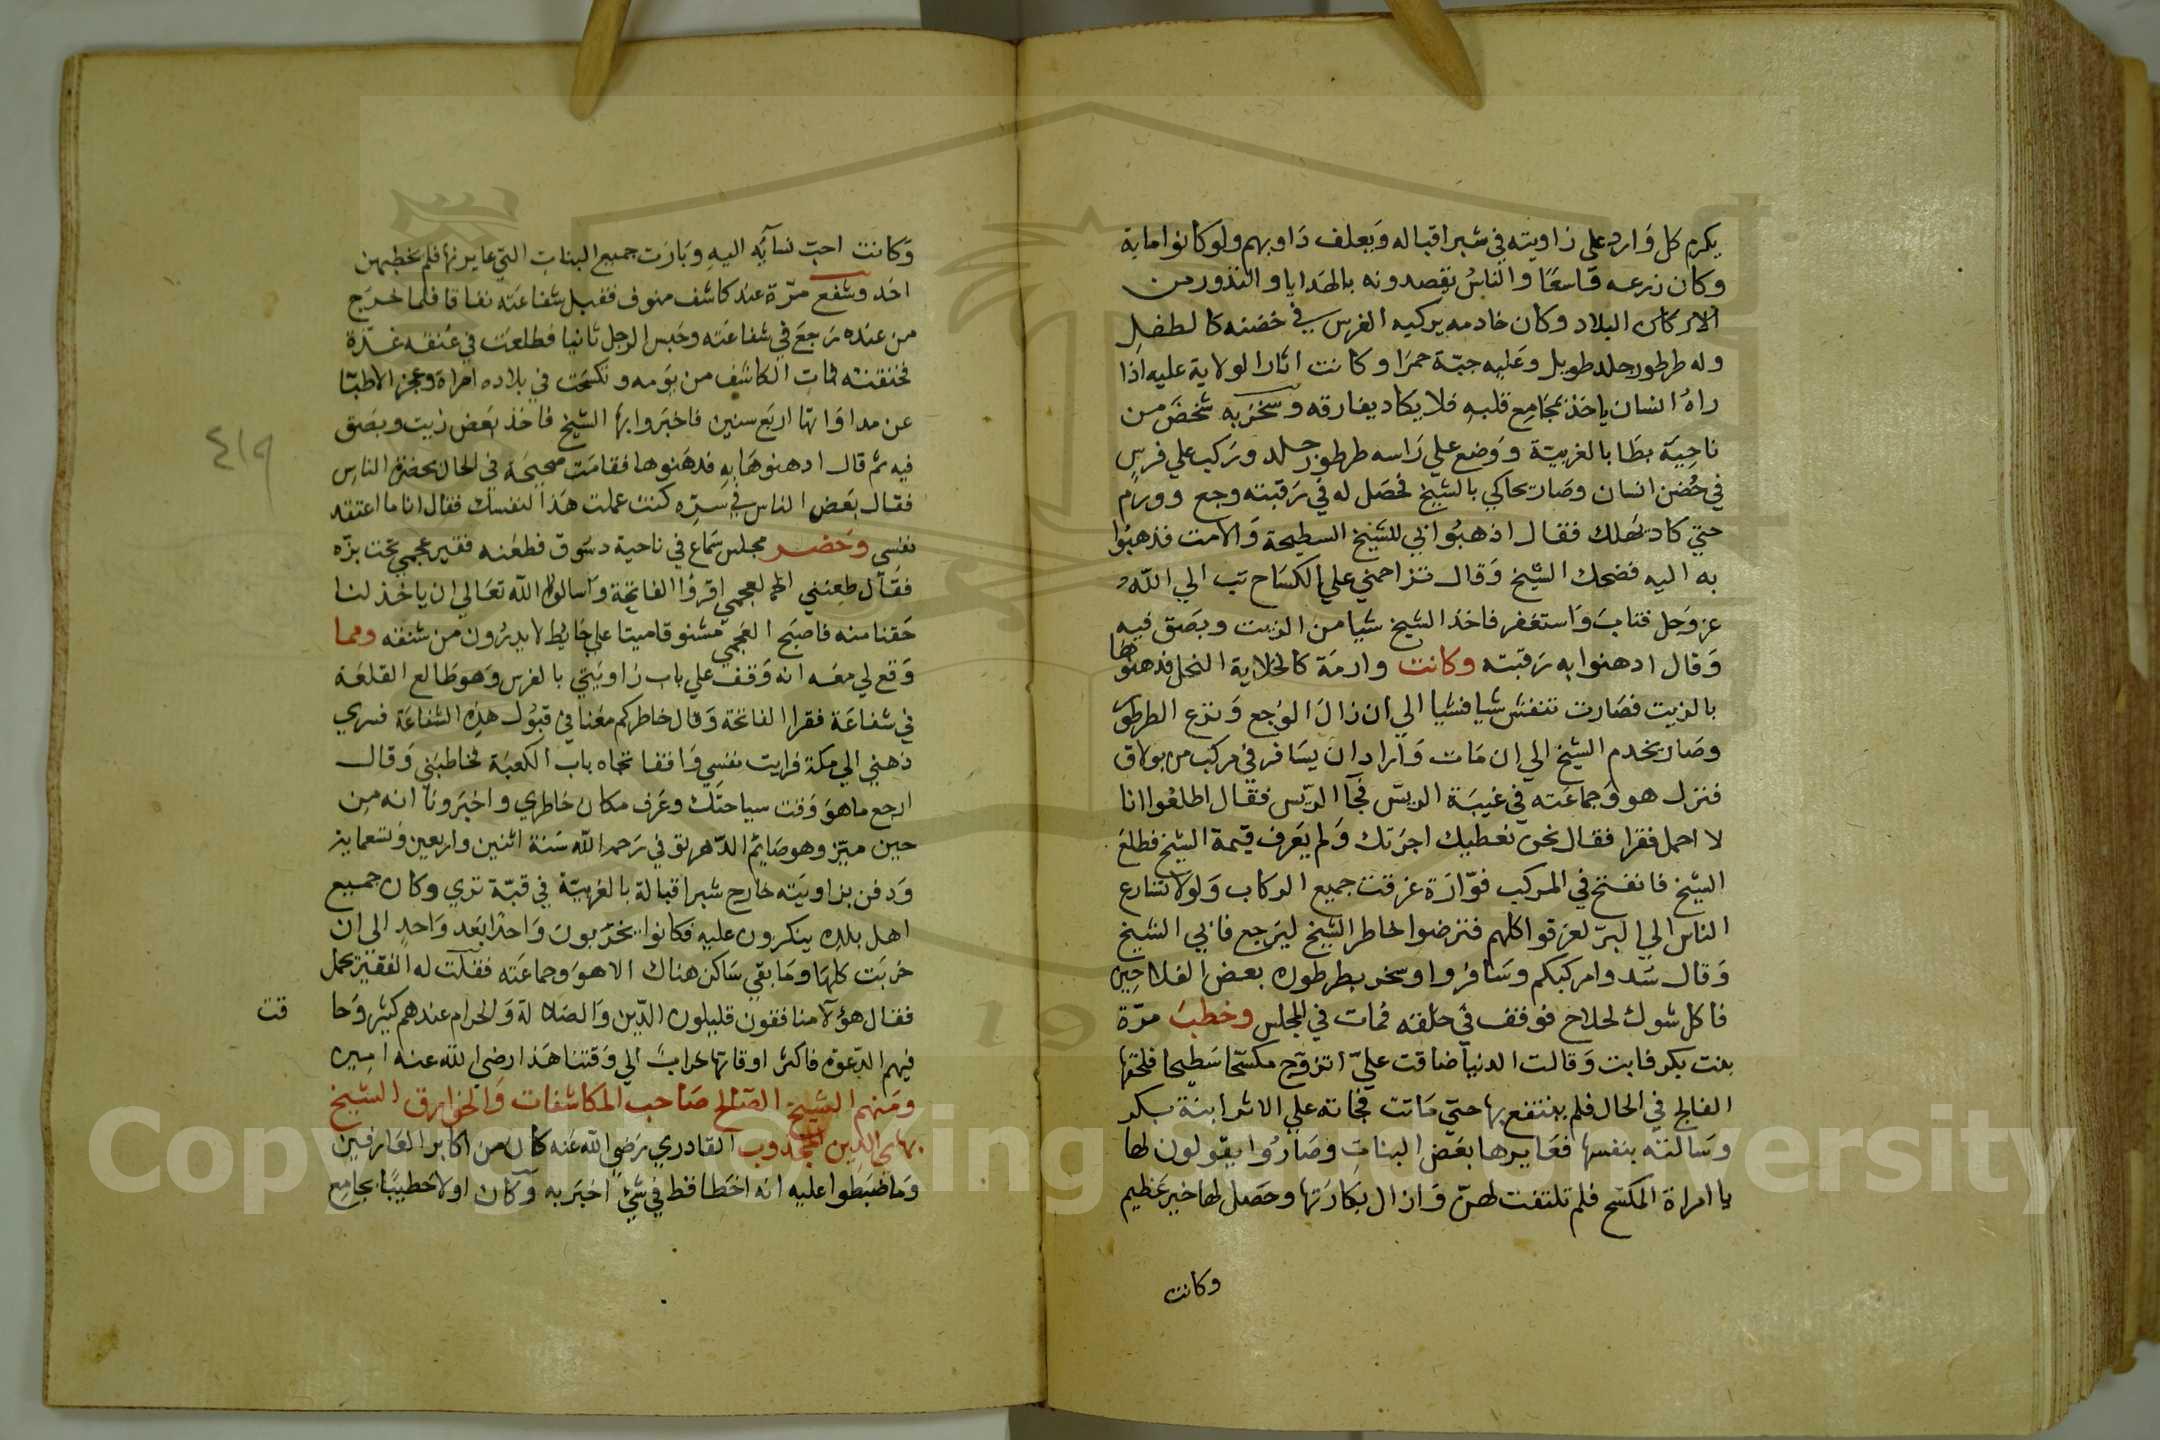 يكرم كل وارد علي زاويته في شبرا قباله ويعلف دوابهم ولو كانوا ماية
وكان زرعه واسعًا والناس يقصدونه بالهدايا والنذور من
البلاد وكان خادمه يركبه الفرس في حضنه كالطفل
وله طرطور جلد طويل وعليه جبة حمرا وكانت اثار الولاية عليه اذا
راه انسان ياخذ بمجامع قلبه فلا يكاد يفارقه وسخر به شخص من
ناحية بطا بالغربية ووضع علي راسه طرطور جلد وركب علي فرس
في حضن انسان وصار يحاكي بالشيخ فحصل له في رقبته وجع وورم
حتي كاد يهلك فقال اذهبوا بي للشيخ السطيحة والا مت فذهبوا
به اليه فضحك الشيخ وقال تزاحمني علي الكساح تب الي الله
عز وجل فتاب واستغفر فاخذ الشيخ شيا من الزيت وبصق فيه
وقال ادهنوا به رقبته وكانت وارمة كالخلاية النحل فدهنوها
بالزيت فصارت تنفش شيا فشيا الي ان زال الوجع ونزع الطرطور
وصار يخدم الشيخ الي ان مات واراد ان يسافر في مركب من بولاق
فنزل هو وجماعته في غيبة الريس فجآ الريس فقال اطلعوا انا
لا احمل فقرا فقال نحن نعطيك اجرتك ولم يعرف قيمة الشيخ فطلع
الشيخ فانفتح في المركب فوارة غرقت جميع الركاب ولولا تسارع
الناس الي البر لغرقوا كلهم فترضوا خاطر الشيخ ليرجع فابي الشيخ
وقال سدوا مركبكم وسافروا وسخر بطرطوره بعض الفلاحين
فاكل شوك لحلاح فوقف في حلقه فمات في المجلس وخطب مرة
بنت بكر فابت وقالت الدنيا ضاقت علي اتزوج مكسحا سطيحا فلحقها
الفالج في الحال فلم ينتفع بها حتي ماتت فجاته علي الاثر ابنة بكر
وسالته بنفسها فعايرها بعض البنات وصاروا يقولون لها
يا امراة المكسح فلم تلتفت لهن وازال بكارتها وحصل لها خير عظيم
وكانت
وكانت احب نسآئه اليه وبارت جميع البنات التي عايرنها فلم يخطبهن
احد وشفع مرة عند كاشف منوف فقبل شفاعته نفاقا فلما خرج
من عنده رجع في شفاعته وحبس الرجل ثانيا فطلعت في عنقه غدة
فخنقته فمات الكاشف من يومه وتكسحت في بلاده امراة وعجز الاطبا
عن مداواتها اربع سنين فاخبروا بها الشيخ فاخذ بعض زيت وبصق
فيه ثم قال ادهنوها به فدهنوها فقامت صحيحة في الحال بحضرة الناس
فقال بعض الناس في سره كنت عملت هذا لنفسك فقال انا ما اعتقد
نفسي وحضر مجلس سماع في ناحية دسوق فطعنه فقير عجمي تحت بزه
فقال طعنني العجمي اقرؤا الفاتحة واسالوا الله تعالي ان ياخذ لنا
حقنا منه فاصبح العجمي مشنوقا ميتا علي حايط لا يدرون من شنقه ومما
وقع لي معه انه وقف علي باب زاويتي بالفرس وهو طالع القلعة
في شفاعة فقرا الفاتحة وقال خاطركم معنا في قبول هذه الشفاعة فسري
ذهني الي مكة فرايت نفسي واقفا تجاه باب الكعبة فخاطبني وقال
ارجع ما هو وقت سياحتك وعرف مكان خاطري واخبرونا انه من
حين ميز وهو صايم الدهر توفي رحمه الله سنة اثنين واربعين وتسعماية
ودفن بزاويته خارج شبرا قبالة بالغربية في قبة تري وكان جميع
اهل بلده ينكرون عليه فكانوا يخربون واحدا بعد واحد الي ان
خربت كلها وما بقي ساكن هناك الا هو وجماعته فقلت له الفقير يحمل
فقال هؤلآ منافقون قليلون الدين والصلاة والحرام عندهم كثير وحا
قت
فيهم الدعوة فاكثر اوقاتها خراب الي وقتنا هذا رضي الله عنه امين
ومنهم الشيخ الصالح صاحب المكاشفات والخوارق الشيخ
بهاي الدين المجذوب القادري رضي الله عنه كان من اكابر العارفين
وما ضبطوا عليه انه اخطا قط في شيء اخبر به وكان اولا خطيبا بجامع
٤١٩
Copyright © King Saud University